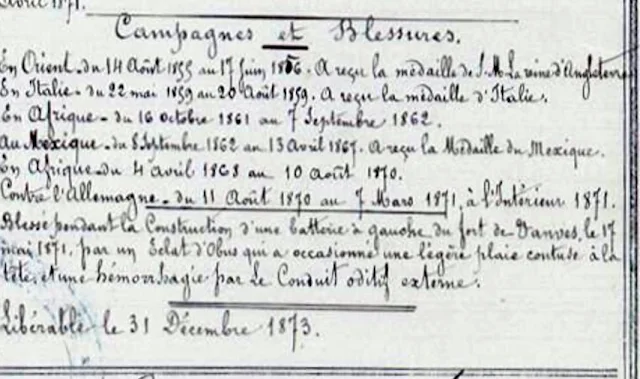 avril 1871.
Campagnes et Blessures.
En Orient - du 14 Août 1855 au 17 Juin 1856. A reçu la médaille de S. M. La reine d'Angleterre
En Italie - du 22 mai 1859 au 20 Août 1859. A reçu la médaille d'Italie.
En Afrique - du 16 octobre 1861 au 7 Septembre 1862.
Au Mexique - du 8 Septembre 1862 au 13 avril 1867. A reçu la Médaille du Mexique.
En Afrique - du 4 avril 1868 au 10 août 1870.
Contre l'Allemagne - du 11 Août 1870 au 7 Mars 1871, à l'Intérieur 1871.
Blessé pendant la Construction d'une batterie à gauche du fort de Vanves, le 17
mai 1871, par un Eclat d'Obus qui a occasionné une légère plaie contuse à la
tête, et une hémorrhagie par Le Conduit oditif externe.
Libérable le 31 Décembre 1873.